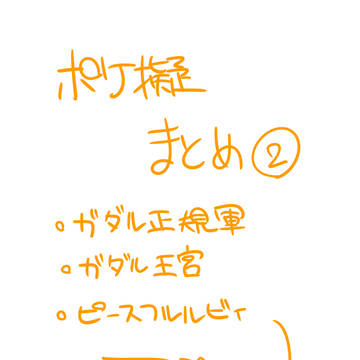 ポケ擬
まとめ②
○ガダル正規軍
○ガダル王宮
○ピースフルルビィ